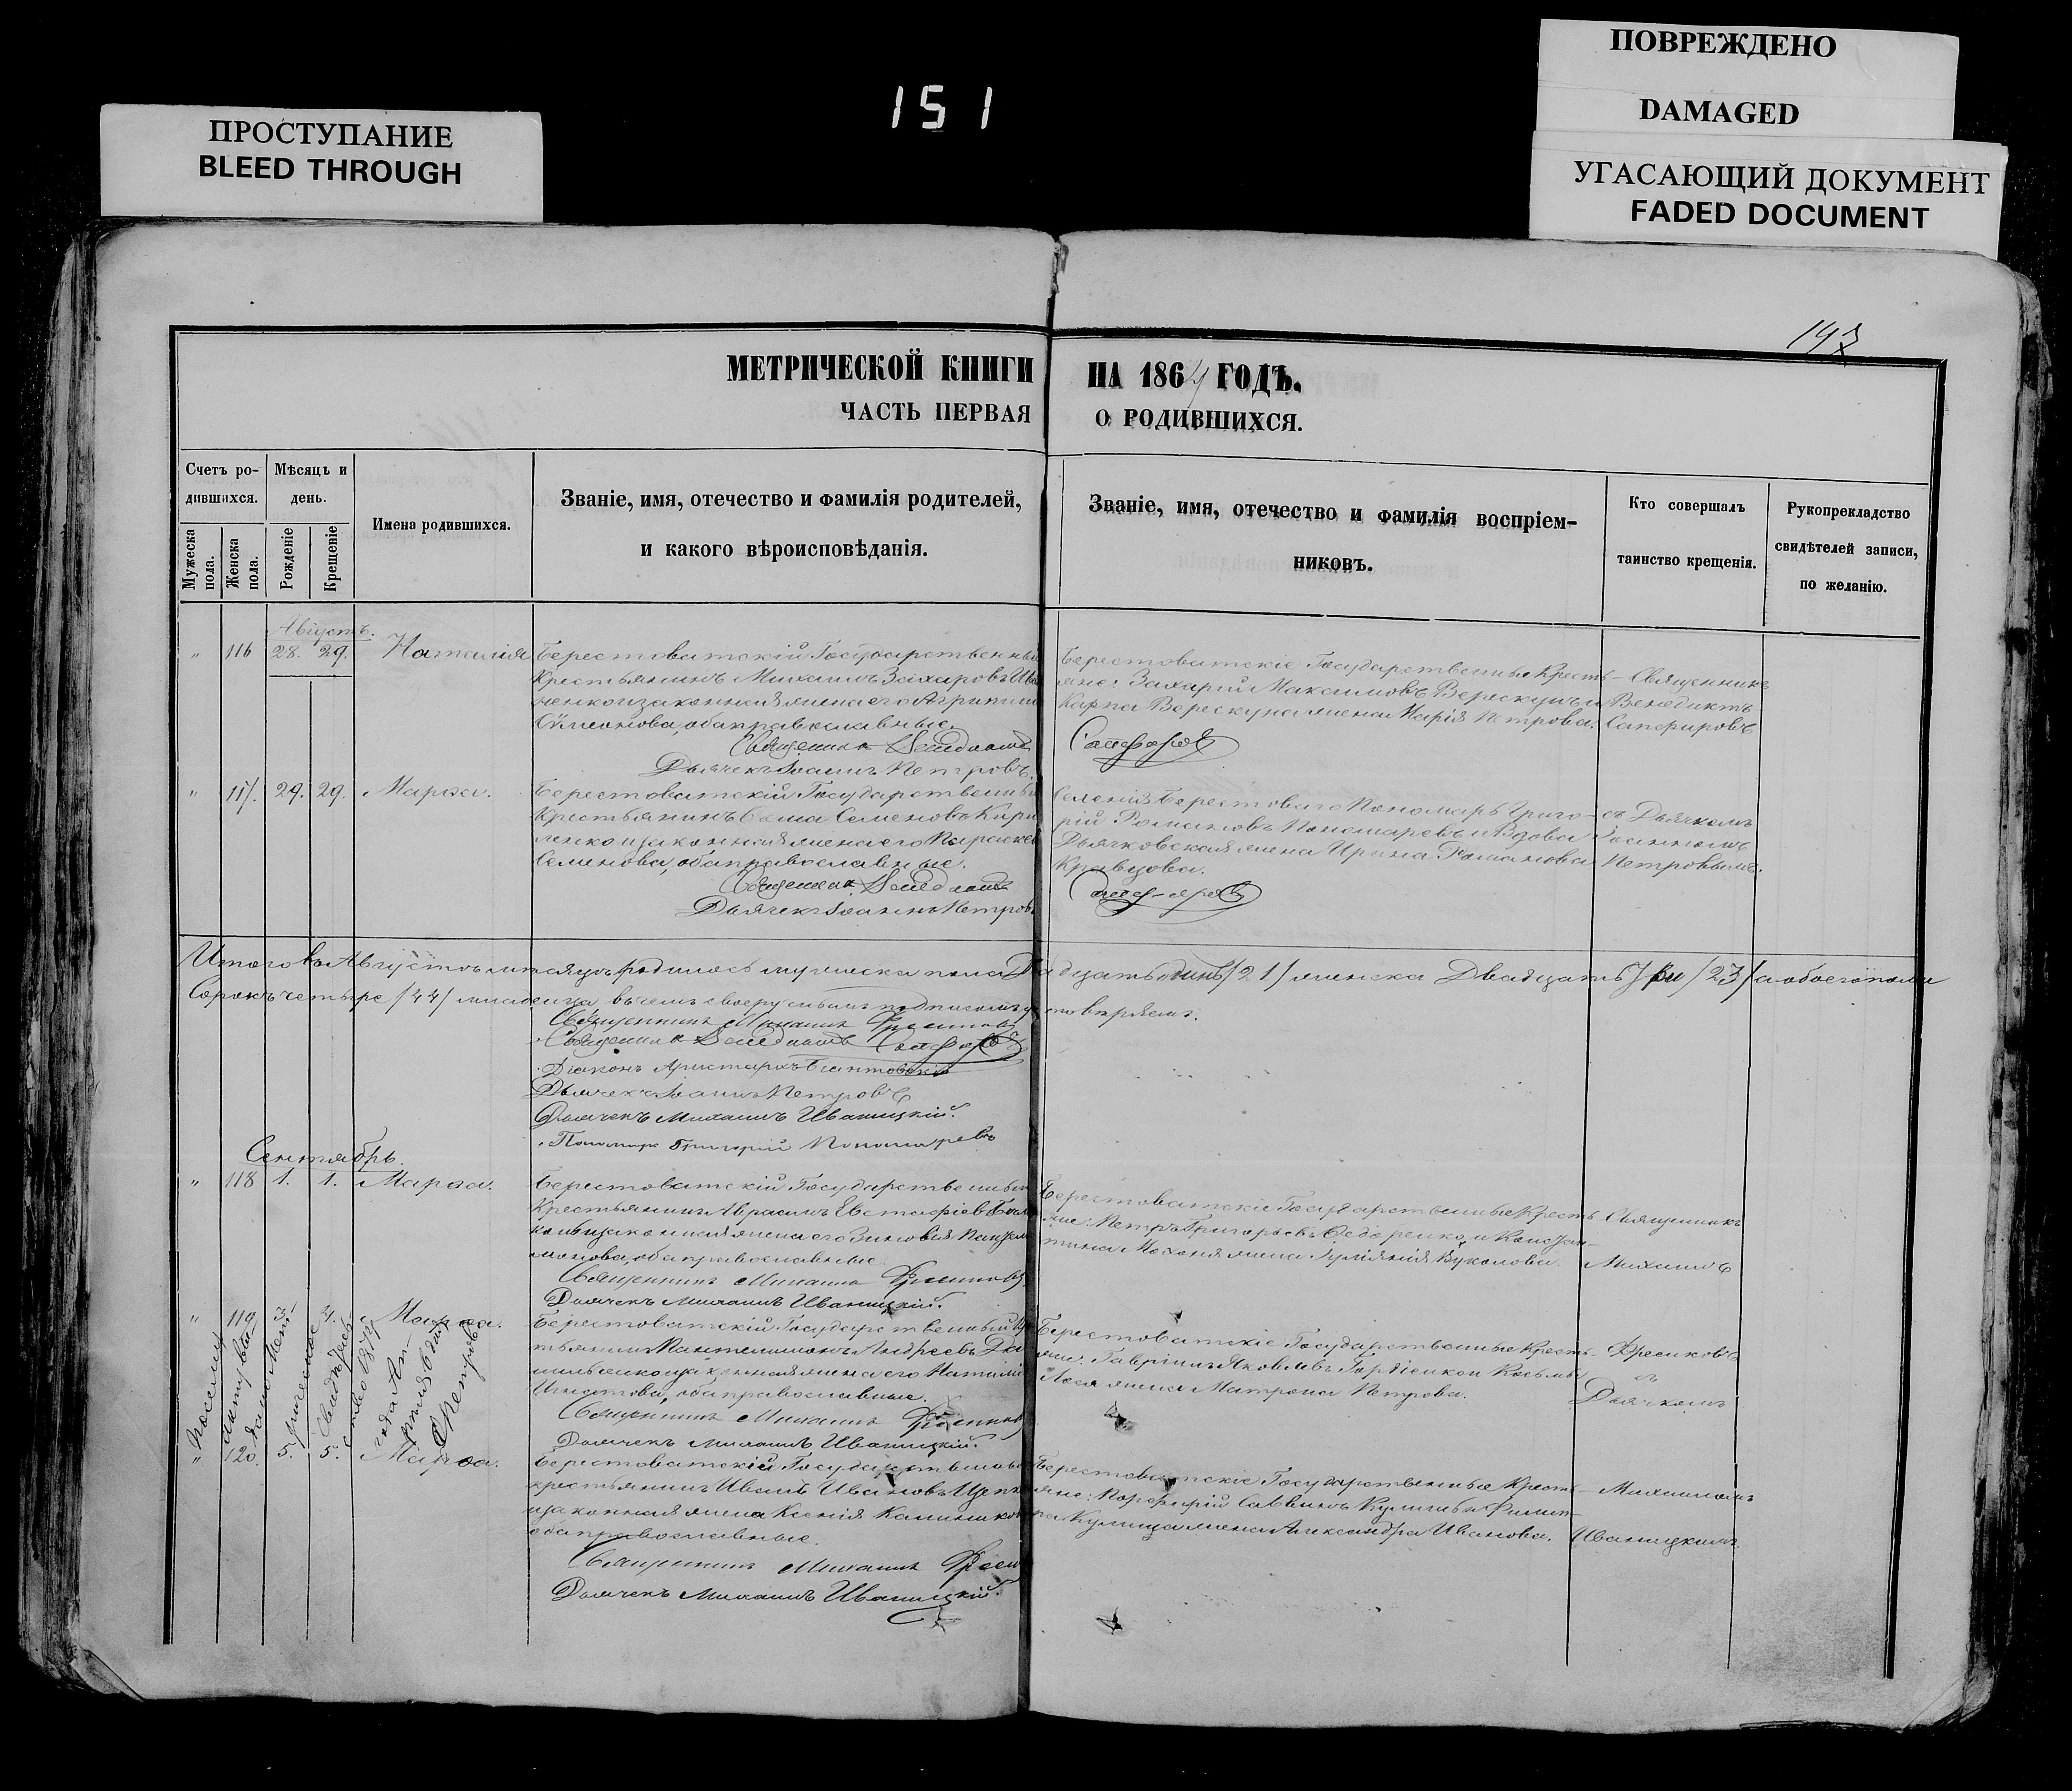 ПОВРЕЖДЕНО
DAMAGED
УГАСАЮЩИЙ ДОКУМЕНТ
FADED DOCUMENT
ПРОСТУПАНИЕ
BLEED THROUGH
151
193
МЕТРИЧЕСКОЙ КНИГИ НА 1864 ГОДЪ.
ЧАСТЬ ПЕРВАЯ О РОДИВШИХСЯ.
Счетъ ро-
дившихся.
Мужеска пола.
Женска пола.
Мѣсяцъ и
день.
Рожденіе
Крещеніе
Имена родившихся.
Званіе, имя, отечество и фамилія родителей,
и какого вѣроисповѣданія.
Званіе, имя, отечество и фамилія воспріем-
никовъ.
Кто совершалъ
таинство крещенія.
Рукоприкладство
свидѣтелей записи,
по желанію.
Августъ.
" 116 28. 29. Наталія
Берестоватскій Государственный
Крестьянинъ Михаилъ Захаровъ
законная жена его Агрипина
Сѵмеонова, оба православные.
Священникъ Венедиктъ
Дьячекъ Іоаннъ Петровъ.
Берестоватскіе Государственные Кресть-
яне: Захарій Максимовъ Верескунъ и
Карпа Верескуна жена Марія Петрова.
Сапфировъ
Священникъ
Венедиктъ
Сапфировъ
" 117. 29. 29. Марѳа.
Берестоватскій Государственный
Крестьянинъ Ѳома Семеновъ Кири
ленко и законная жена его Параскева
Семенова, оба православные.
Священникъ Венедиктъ
Дьячекъ Іоаннъ Петровъ
Селенія Берестоваго Пономарь Григо-
рій Романовъ Пономаревъ и Вдова
Дьячковская жена Ирина Романова
Кравцова.
Сапфировъ
съ Дьячкомъ
Іоанномъ
Петровымъ.
Итого въ Августѣ мѣсяцѣ родилось мужеска пола Двадцать одинъ /21/ женска Двадцать три /23/ а обоего пола
Сорокъ четыре /44/ младенца въ чемъ своеручнымъ подписомъ утверждаемъ.
Священникъ Михаилъ Фесенковъ
Священникъ Венедиктъ Сапфировъ
Діаконъ Аристархъ
Дьячекъ Іоаннъ Петровъ
Дьячекъ Михаилъ Иваницкій.
Пономарь Григорій Пономаревъ
Сентябрь.
" 118 1. 1. Марѳа.
Берестоватскій Государственный
Крестьянинъ Герасимъ Евстафіевъ
законная жена его Зиновія Пантеле
монова, оба православные.
Священникъ Михаилъ Фесенковъ
Дьячекъ Михаилъ Иваницкій.
Берестоватскіе Государственные Кресть-
яне: Петръ Григорьевъ Сидоренко и Констан-
тина жена Вуколова.
Священникъ
Михаилъ
" 119 3. 4. Марѳа.
Берестоватскій Государственный Кре
стьянинъ Пантелеимонъ Андреевъ Да
нильченко и законная жена его Наталія
Игнатова, оба православные.
Священникъ Михаилъ Фесенковъ
Дьячекъ Михаилъ Иваницкій.
Берестоватскіе Государственные Кресть-
яне: Гавріилъ Яковлевъ Гордіенко и Косьмы
жена Матрона Петрова.
Фесенковъ
съ
Дьячкомъ
" 120. 5. 5. Марѳа.
Берестоватскій Государственный
крестьянинъ Ивановъ
законная жена Ксенія
оба православные.
Священникъ Михаилъ Фесен
Дьячекъ Михаилъ Иваницкій.
Берестоватскіе Государственные Кресть-
яне: Порфирій Саввинъ и Филип-
па жена Александра Иванова.
Михаиломъ
Иваницкимъ.